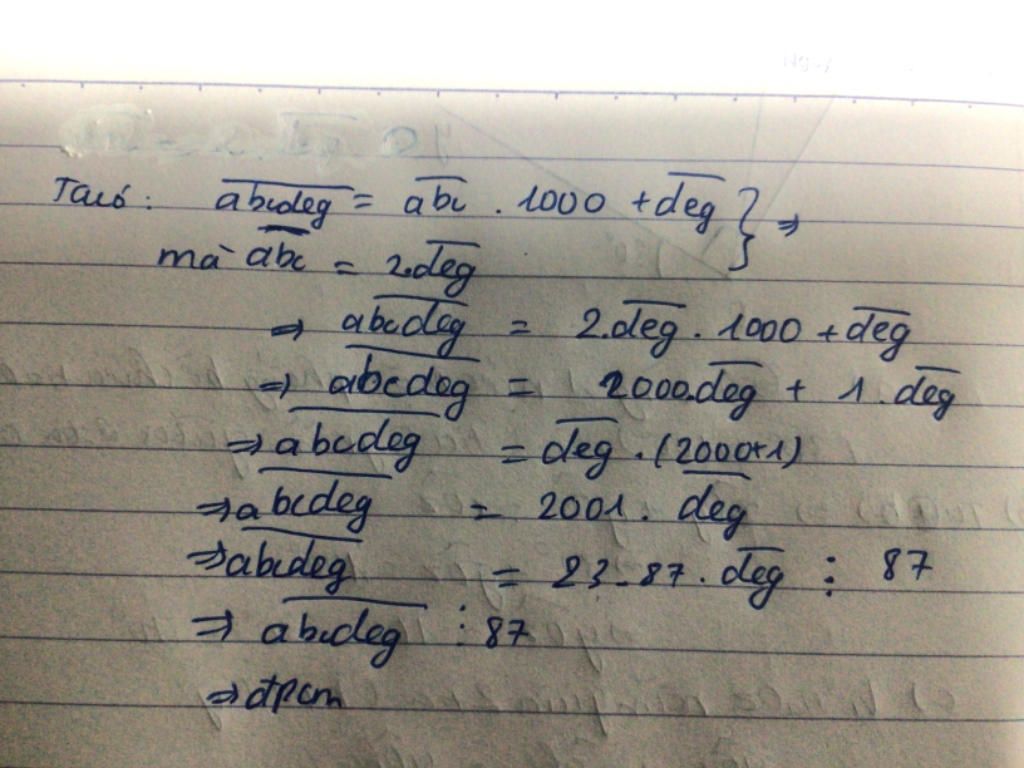 Ta có : \overline{abcdeg} = \overline{abc} . 1000 + \overline{deg} } ⇒
mà \overline{abc} = 2.\overline{deg}
⇒ \overline{abcdeg} = 2.\overline{deg} . 1000 + \overline{deg}
⇒ \overline{abcdeg} = 2000.\overline{deg} + 1.\overline{deg}
⇒ \overline{abcdeg} = \overline{deg} . (2000+1)
⇒ \overline{abcdeg} = 2001. \overline{deg}
⇒ \overline{abcdeg} = 23.87.\overline{deg} ⋮ 87
⇒ \overline{abcdeg} ⋮ 87
⇒ đpcm